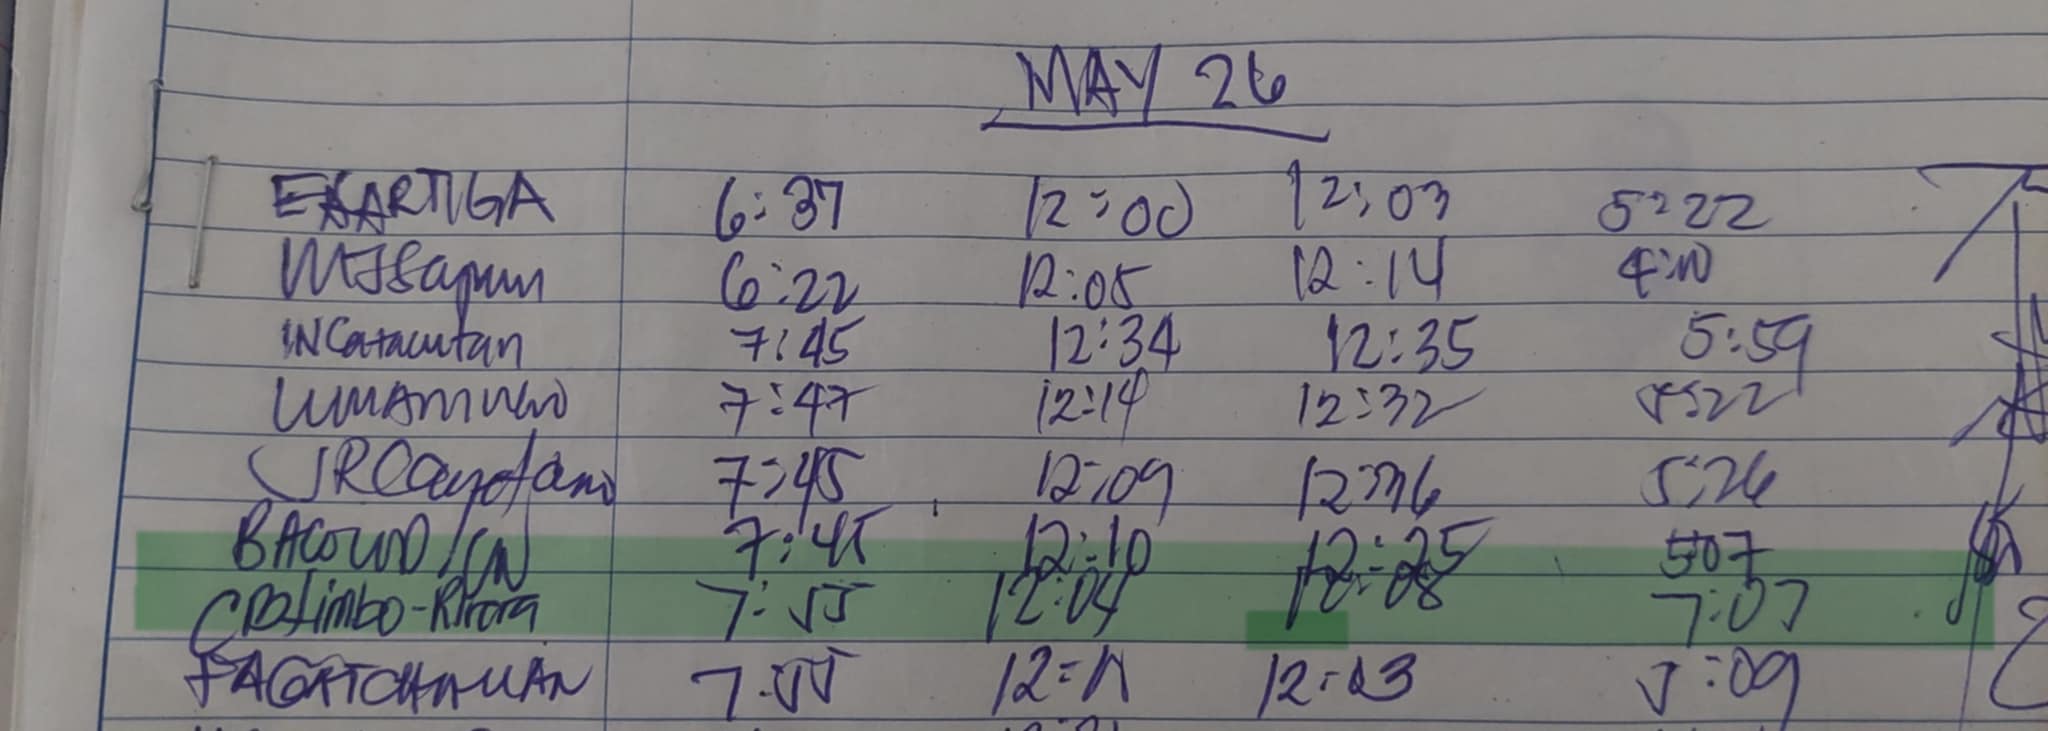 MAY 26
EKARTIGA 6:37 12:00 12:03 5:22
MJSapun 6:22 12:05 12:14 4:10
INCatacutan 7:45 12:34 12:35 5:59
7:47 12:14 12:32 5:22
JRCayetano 7:45 12:09 12:36 5:26
7:45 12:10 12:25 5:07
7:55 12:04 12:08 7:07
FAGATCHALIAN 7:55 12:11 12:13 5:09